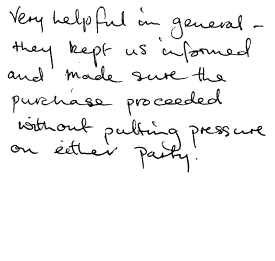 Very helpful in general -
they kept us informed
and made sure the
purchase proceeded
without putting pressure
on either party.